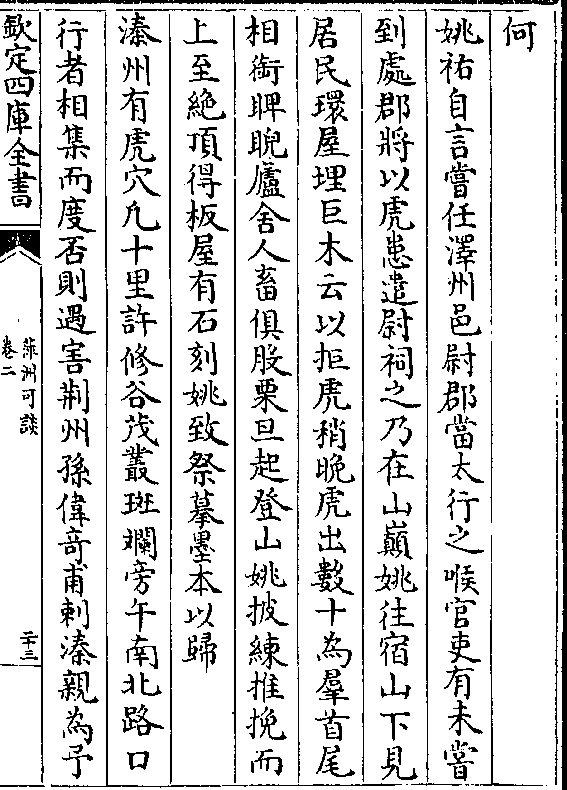 何
姚祐自言嘗任澤州邑尉郡當太行之喉官吏有未嘗
到處郡將以虎患遣尉祠之乃在山巔姚往宿山下見
居民環屋埋巨木云以拒虎稍晚虎出數十為羣首尾
相銜睥睨廬舍人畜俱股栗旦起登山姚披練推挽而
上至絶頂得板屋有石刻姚致祭摹墨本以歸
溱州有虎穴凡十里許修谷茂叢斑斕旁午南北路口
行者相集而度否則遇害荆州孫偉竒甫刺溱親為予
欽定四庫全書
萍洲可談
卷二
二十三